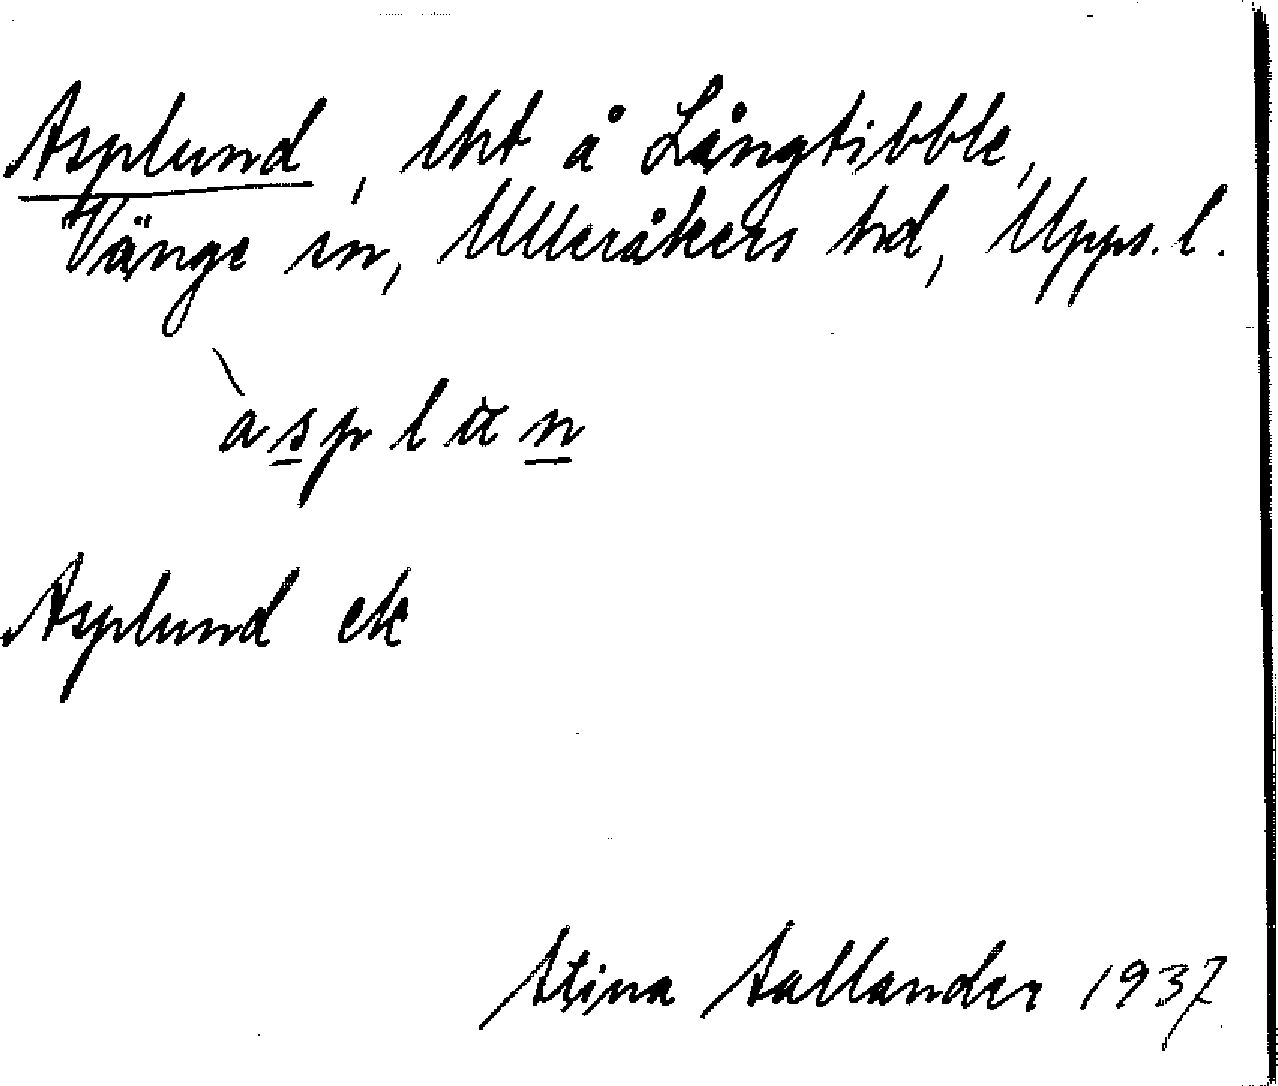 Asplund, lht å Långtibble,
Vänge sn, Ulleråkers hd, Upps. l.
àsplun
Asplund ek
Stina Sallander 1937